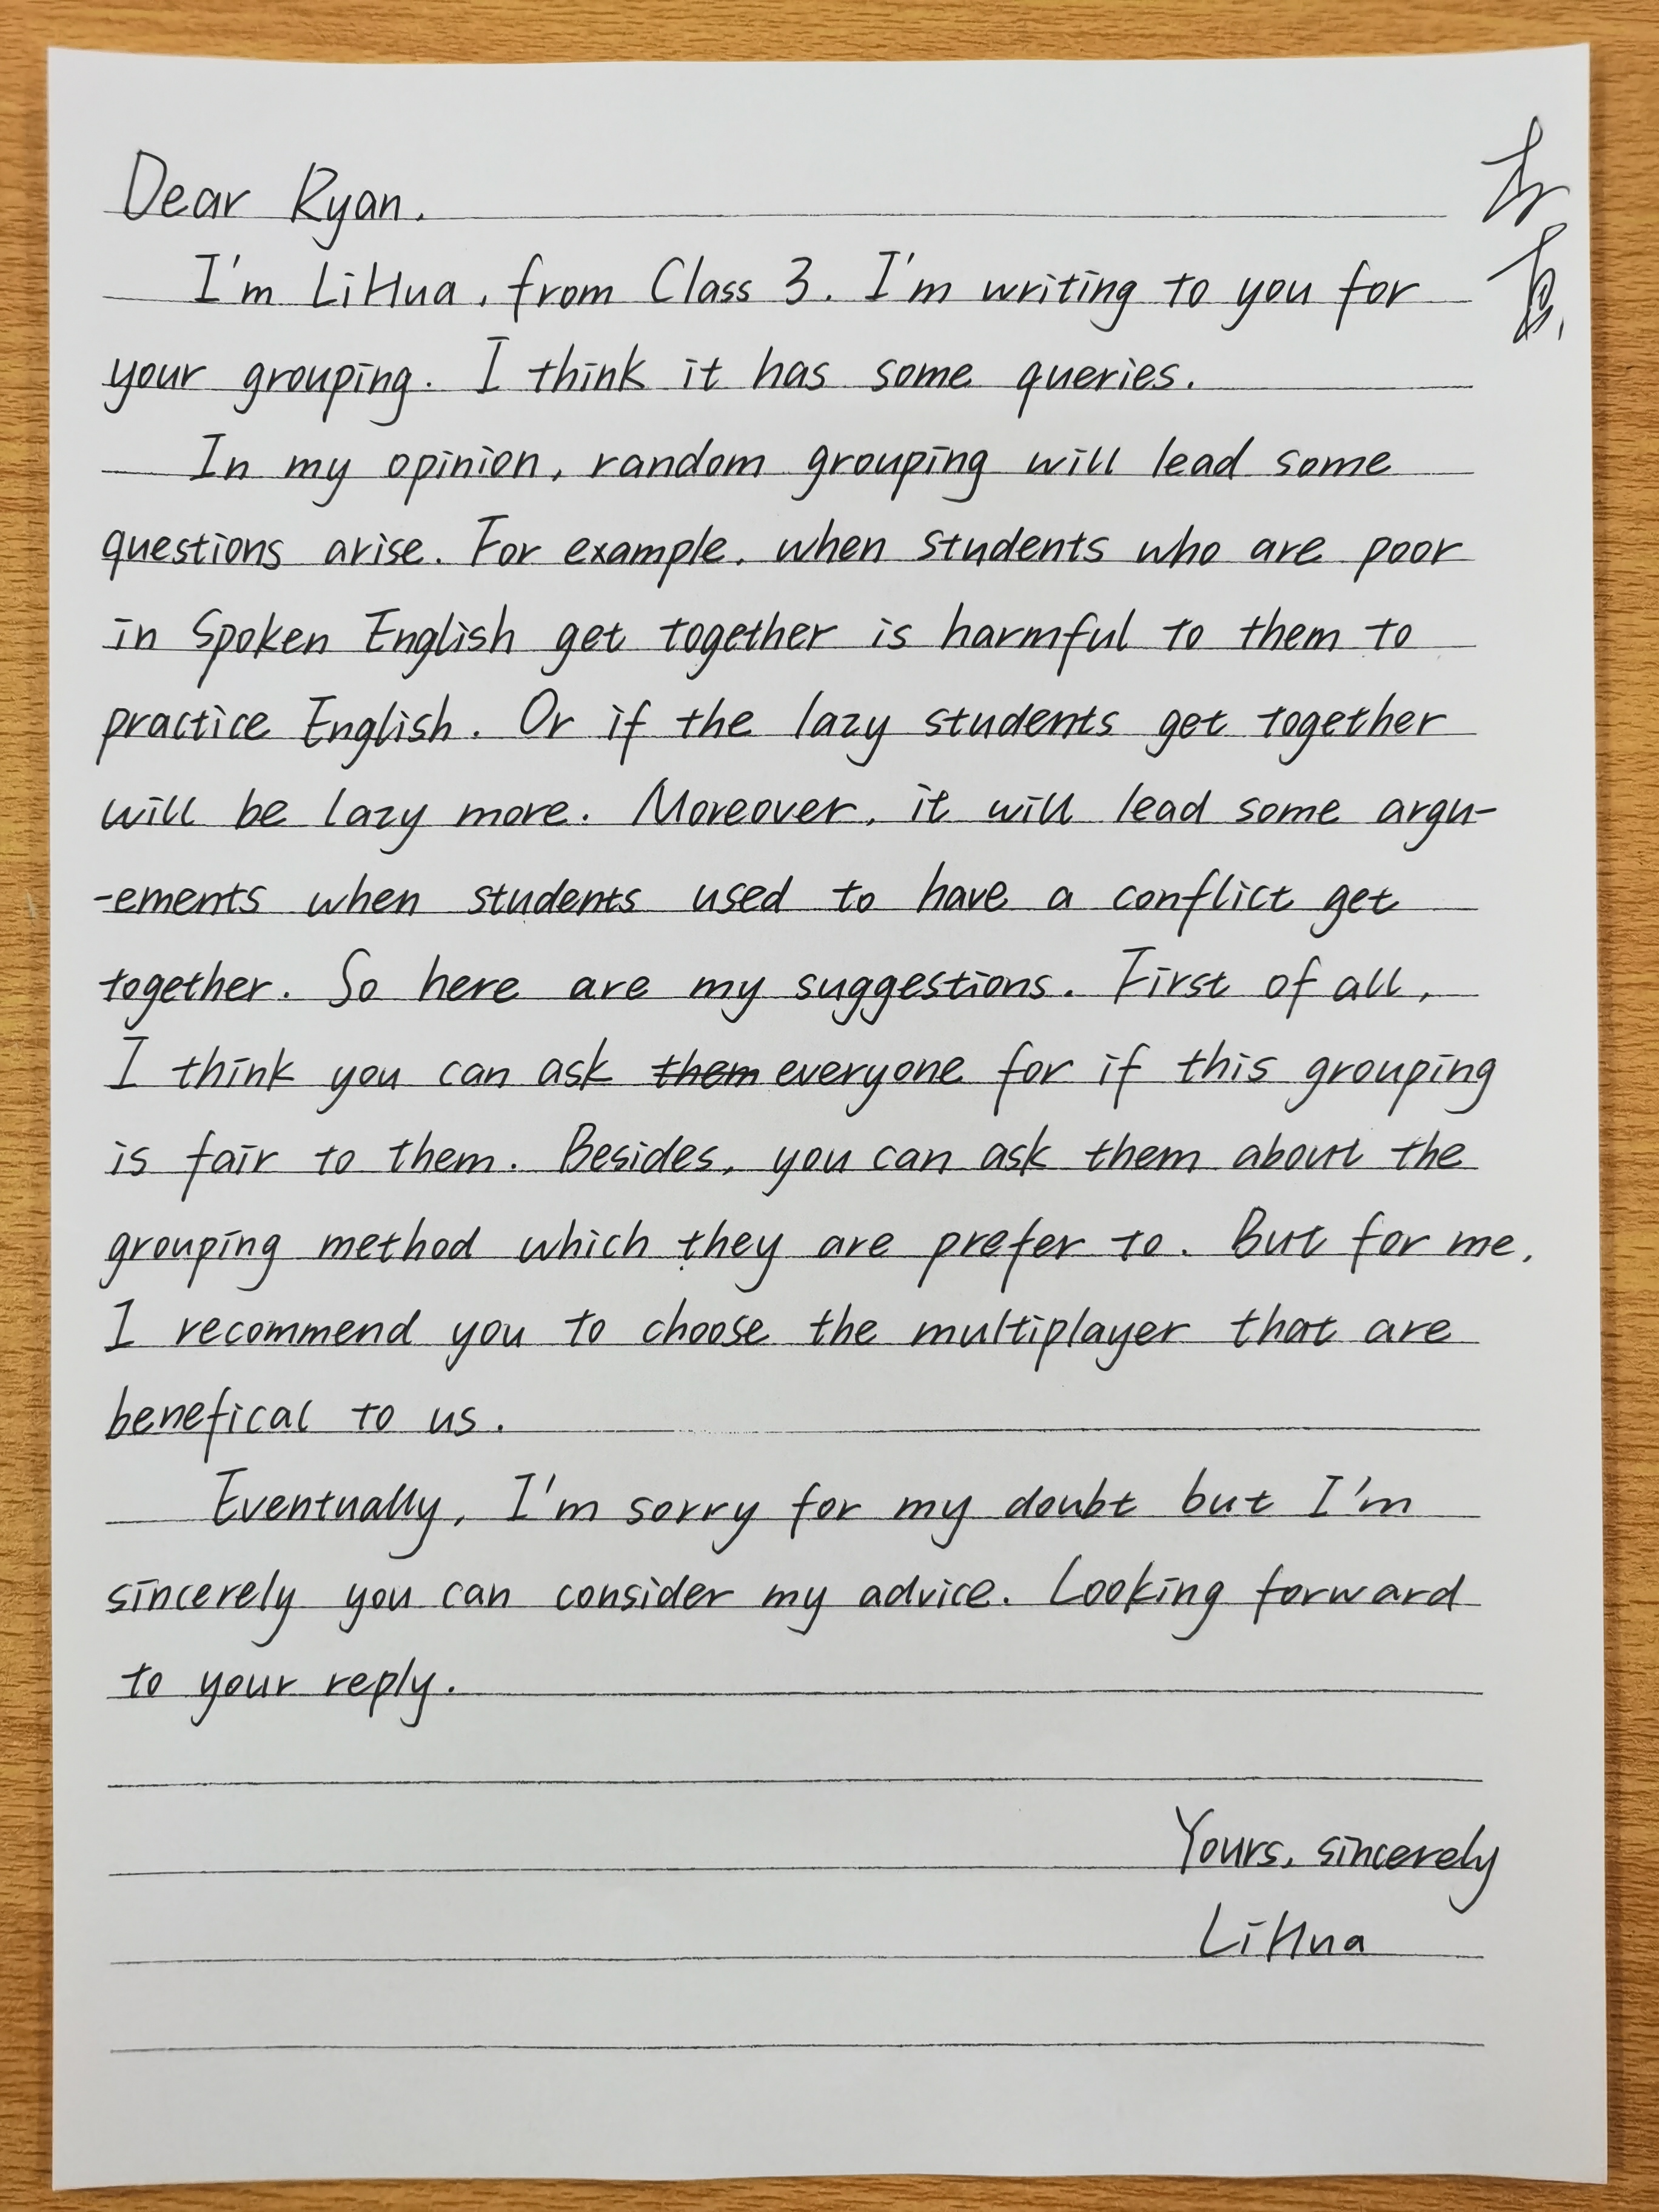 Dear Ryan,
I'm LiHua, from Class 3. I'm writing to you for
your grouping. I think it has some queries.
In my opinion, random grouping will lead some
questions arise. For example, when students who are poor
in Spoken English get together is harmful to them to
practice English. Or if the lazy students get together
will be lazy more. Moreover, it will lead some argu-
-ements when students used to have a conflict get
together. So here are my suggestions. First of all,
I think you can ask them everyone for if this grouping
is fair to them. Besides, you can ask them about the
grouping method which they are prefer to. But for me,
I recommend you to choose the multiplayer that are
benefical to us.
Eventually, I'm sorry for my doubt but I'm
sincerely you can consider my advice. Looking forward
to your reply.
Yours, sincerely
LiHua